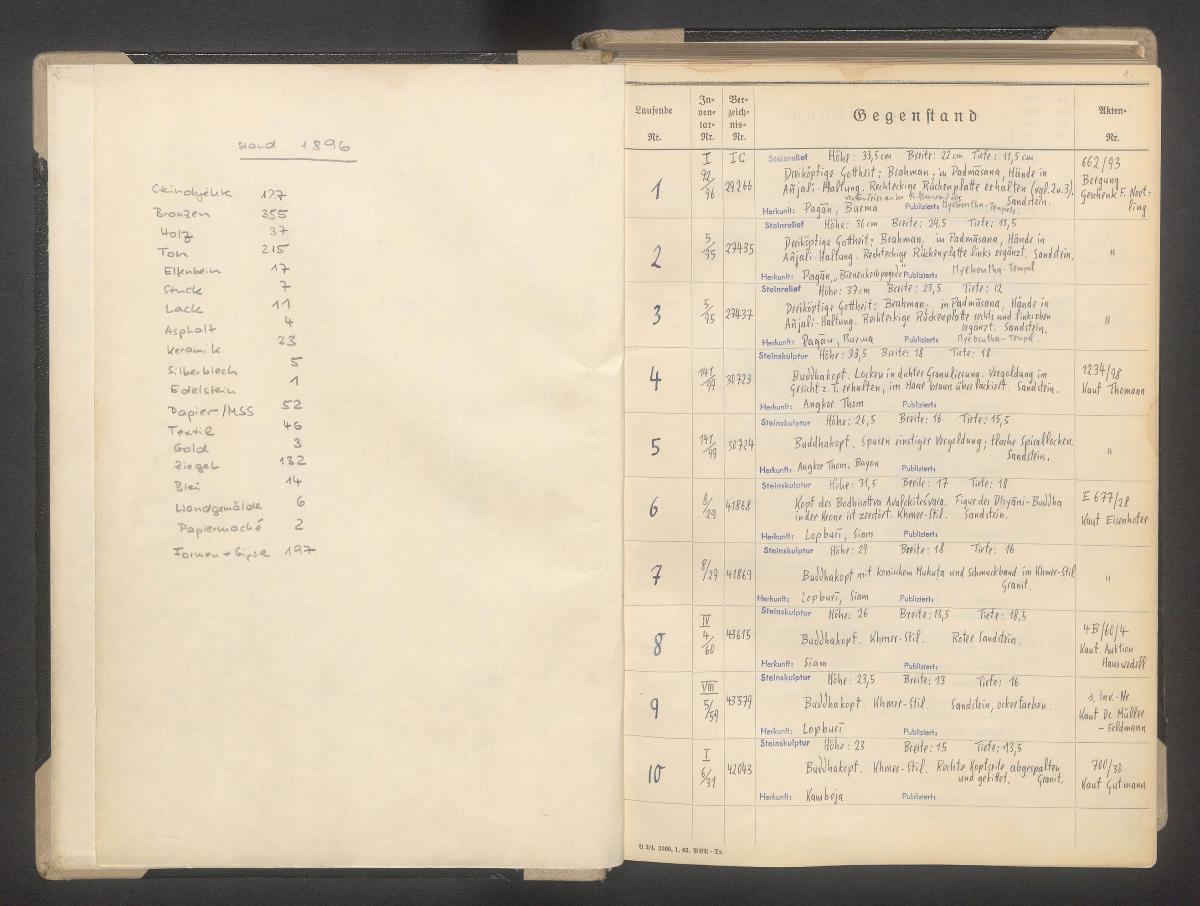 Stand 1896
Steinobjekte 127
Bronzen 355
Holz 37
Ton 215
Elfenbein 17
Stuck 7
Lack 11
Asphalt 4
Keramik 23
Silberblech 5
Edelstein 1
Papier/MSS 52
Textil 46
Gold 3
Ziegel 132
Blei 14
Wandgemälde 6
Papiermaché 2
Formen + Gipse 197
1.
Laufende Nr.
In-ven-tar-Nr.
Ver-zeich-nis-Nr.
Gegenstand
Akten-Nr.
1
I 92/96
IC 29266
Steinrelief Höhe: 33,5 cm Breite: 22 cm Tiefe: 11,5 cm
Dreiköpfige Gottheit: Brahman. in Padmāsana, Hände in
Añjali-Haltung. Rechteckige Rückenplatte erhalten (vgl. 2 u. 3).
Sandstein.
Herkunft: Pagān, Burma Publiziert: Myebontha-Tempels.
662/93
Bergung
Geschenk F. Noet-
ling
2
5/95
27435
Steinrelief Höhe: 36 cm Breite: 24,5 Tiefe: 13,5
Dreiköpfige Gottheit: Brahman. in Padmāsana, Hände in
Añjali-Haltung. Rechteckige Rückenplatte links ergänzt. Sandstein.
Herkunft: Pagān, „Bienenkorbpagode" Publiziert: Myebontha-Tempel
"
3
5/95
27437
Steinrelief Höhe: 37 cm Breite: 23,5 Tiefe: 12
Dreiköpfige Gottheit: Brahman. in Padmāsana, Hände in
Añjali-Haltung. Rechteckige Rückenplatte rechts und links oben
ergänzt. Sandstein.
Herkunft: Pagān, Burma Publiziert: Myebontha-Tempel.
"
4
141/99
30723
Steinskulptur Höhe: 33,5 Breite: 18 Tiefe: 18
Buddhakopf. Locken in dichter Granulierung. Vergoldung im
Gesicht z. T. erhalten, im Haar braun überlackiert. Sandstein.
Herkunft: Angkor Thom Publiziert:
1234/98
Kauf Thomann
5
141/99
30724
Steinskulptur Höhe: 26,5 Breite: 16 Tiefe: 15,5
Buddhakopf. Spuren einstiger Vergoldung; flache Spirallocken.
Sandstein.
Herkunft: Angkor Thom, Bayon Publiziert:
"
6
8/29
41868
Steinskulptur Höhe: 31,5 Breite: 17 Tiefe: 18
Kopf des Bodhisattva Avalokiteśvara. Figur des Dhyāni-Buddha
in der Krone ist zerstört. Khmer-Stil. Sandstein.
Herkunft: Lopburī, Siam Publiziert:
E 677/28
Kauf Eisenhofer
7
8/29
41869
Steinskulptur Höhe: 29 Breite: 18 Tiefe: 16
Buddhakopf mit konischem Mukuta und Schmuckband im Khmer-Stil
Granit.
Herkunft: Lopburī, Siam Publiziert:
"
8
IV 4/60
43615
Steinskulptur Höhe: 26 Breite: 13,5 Tiefe: 18,5
Buddhakopf. Khmer-Stil. Roter Sandstein.
Herkunft: Siam Publiziert:
4B/60/4
Kauf Auktion
Hauswedell
9
VIII 5/59
43579
Steinskulptur Höhe: 23,5 Breite: 13 Tiefe: 16
Buddhakopf. Khmer-Stil. Sandstein, ockerfarben.
Herkunft: Lopburī Publiziert:
s. Inv.-Nr.
Kauf Dr. Müller
– Feldmann
10
I 6/31
42043
Steinskulptur Höhe: 23 Breite: 15 Tiefe: 13,5
Buddhakopf. Khmer-Stil. Rechte Kopfseite abgespalten
und gekittet. Granit.
Herkunft: Kamboja Publiziert:
700/30
Kauf Gutmann
II 3/4. 3500. 1. 62. BBR - Tr.